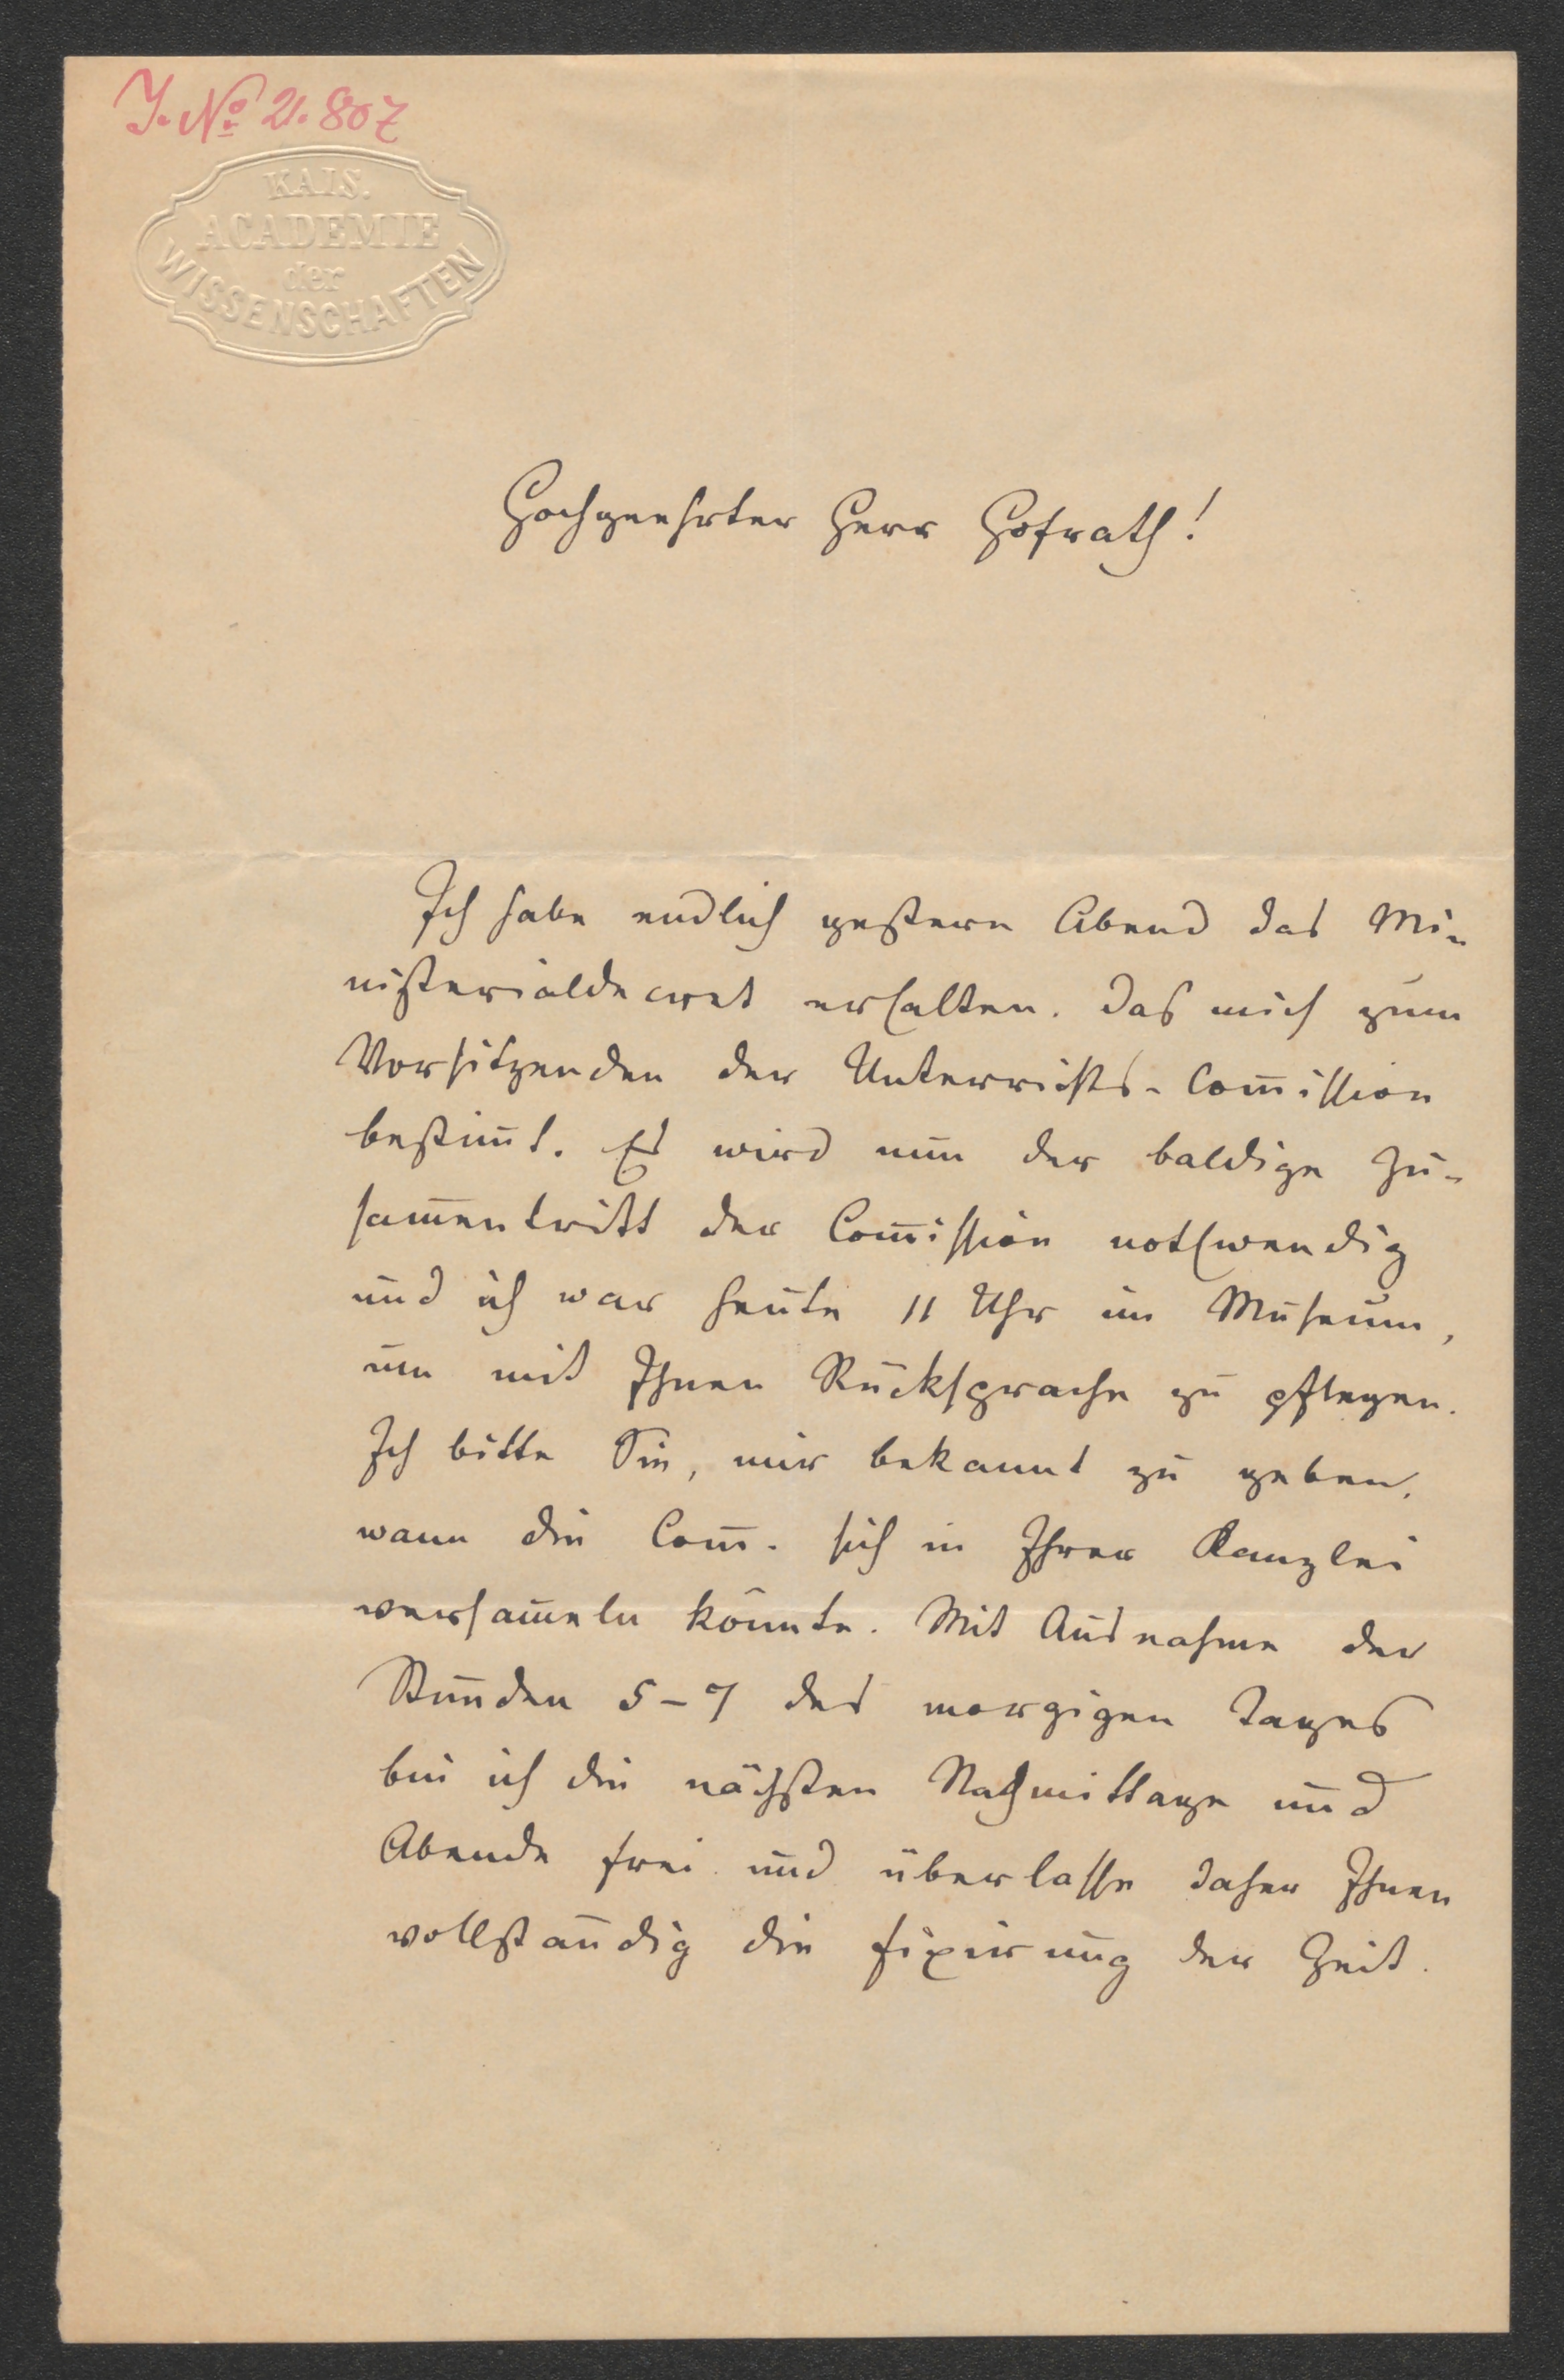 J. No. 21.807
KAIS.
ACADEMIE
der
WISSENSCHAFTEN
Hochgeehrter Herr Hofrath!
Ich habe endlich gestern Abend das Mi-
nisterialdecret erhalten. das mich zum
Vorsitzenden der Unterrichts-Com̄ission
bestim̄t. Es wird nun der baldige Zu-
sam̄entritt der Com̄ission nothwendig
und ich war heute 11 Uhr im Museum,
um mit Ihnen Rücksprache zu pflegen.
Ich bitte Sie, mir bekannt zu geben,
wann die Com̄. sich in Ihrer Kanzlei
versam̄eln könnte. Mit Ausnahme der
Stunden 5–7 des morgigen Tages
bin ich die nächsten Nachmittage und
Abende frei und überlasse daher Ihnen
vollständig die Fixirung der Zeit.